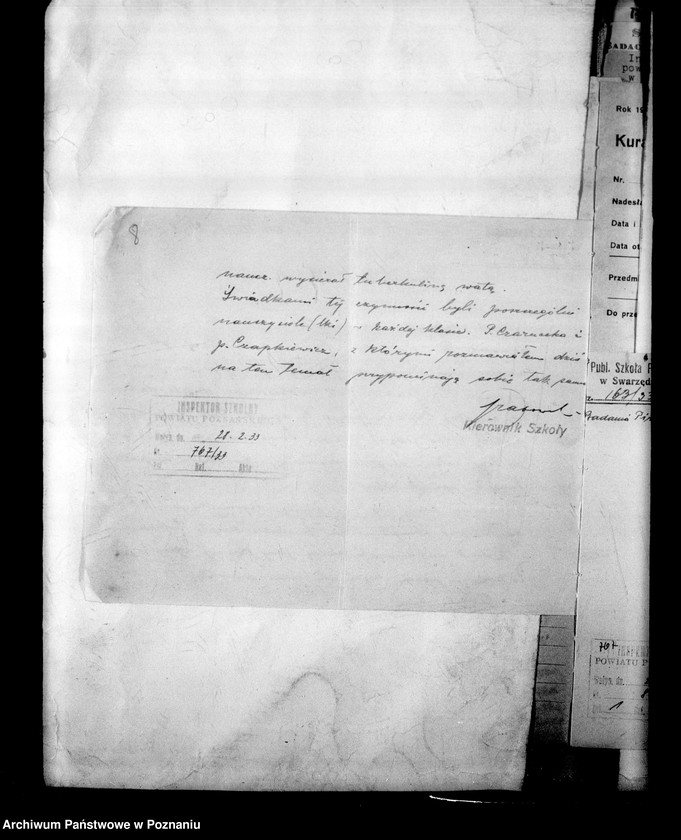 8
naucz. wycierał tuberkulinę watą.
Świadkami tej czynności byli poszczególni
nauczyciele (lki) w każdej klasie. P. Czarnecka i
p. Czapkiewicz, z którymi rozmawiałem dziś
na ten temat przypominają sobie tak samo
Kierownik Szkoły
INSPEKTOR SZKOLNY
POWIATU POZNAŃSKIEGO
Wpłyn. dn. 28. 2. 33
Nr. 767/33
Zał. Ref. Akta
Rok 19
Kura
Nr.
Nadesła
Data i
Data ot
Przedmi
Do prze
Publ. Szkoła P
w Swarzęd
163/33
Badania Pi
767 INSPE
POWIATU P
Wpłyn. dn.
1
Archiwum Państwowe w Poznaniu